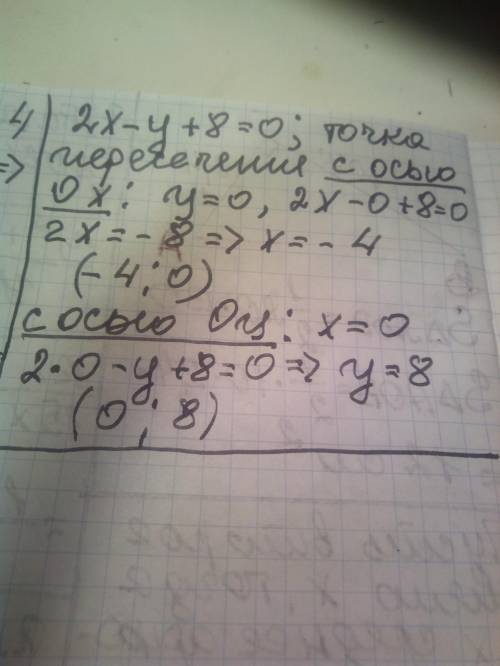 4) 2x-y+8=0; точка
=> пересечения с осью
Ox: y=0, 2x-0+8=0
2x=-8 => x=-4
(-4; 0)
с осью Oy: x=0
2·0-y+8=0=> y=8
(0; 8)